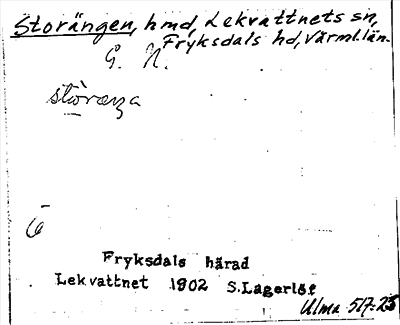 Storängen, hmd, Lekvattnets sn,
Fryksdals hd, Värml. län.
G. N.
Fryksdals härad
Lekvattnet 1902 S. Lagerlöf
Ulma 517:23